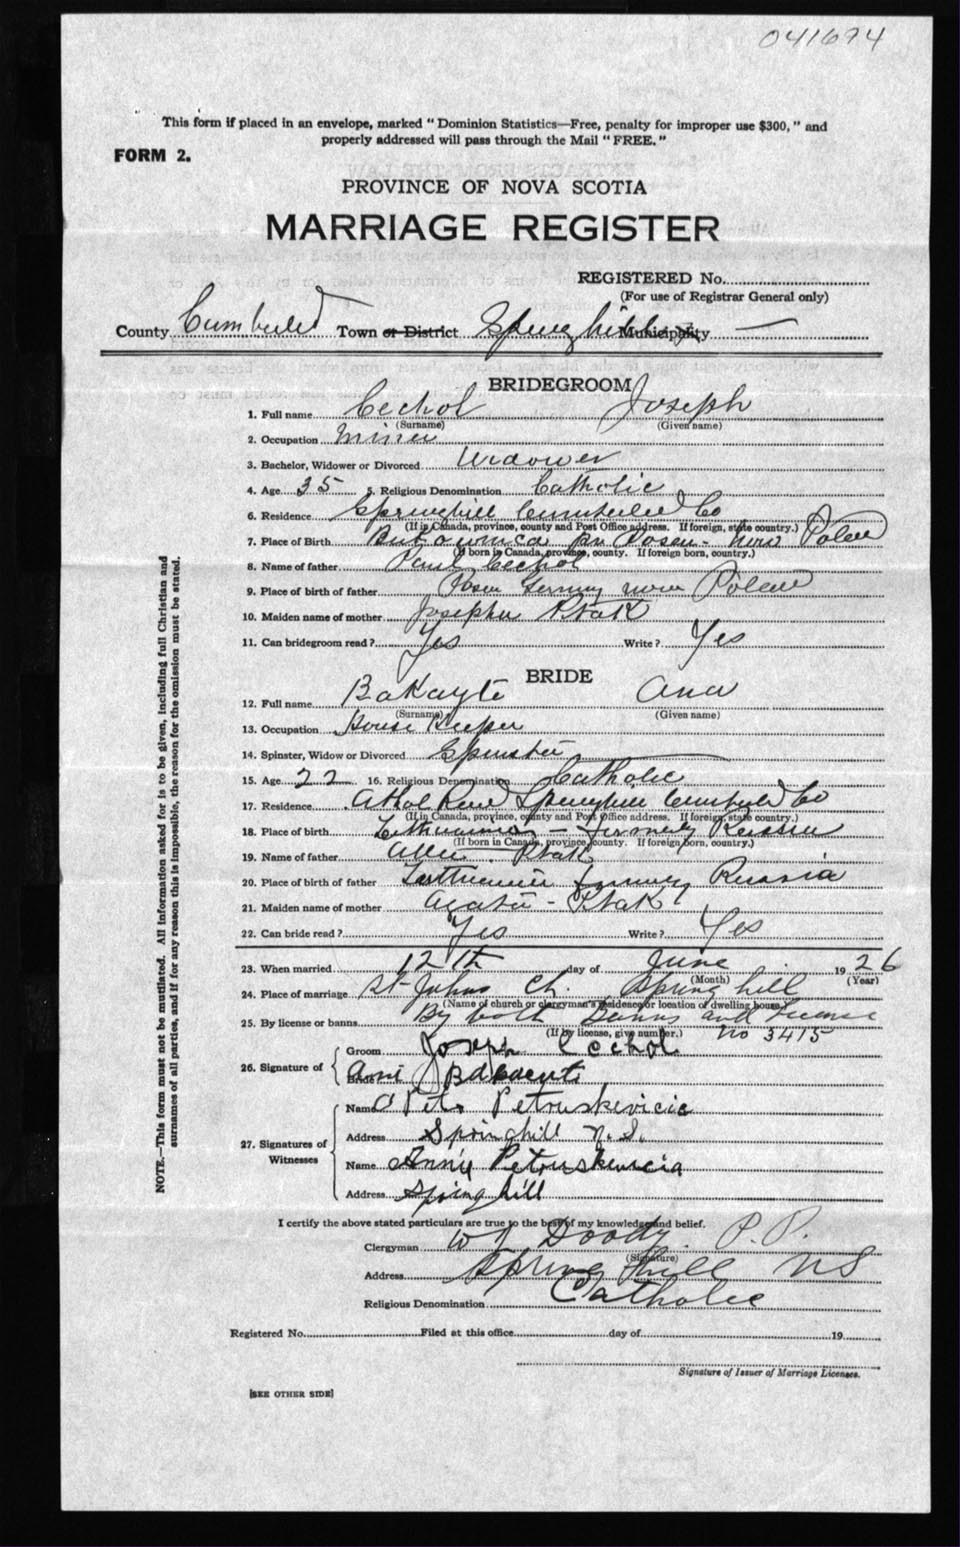 041694
This form if placed in an envelope, marked "Dominion Statistics—Free, penalty for improper use $300," and
properly addressed will pass through the Mail "FREE."
FORM 2.
PROVINCE OF NOVA SCOTIA
MARRIAGE REGISTER
REGISTERED No.
(For use of Registrar General only)
County Cumberled Town or District Springhill Municipality —
BRIDEGROOM
1. Full name Cechol Joseph
(Surname) (Given name)
2. Occupation Miner
3. Bachelor, Widower or Divorced Widower
4. Age 35 5. Religious Denomination Catholic
6. Residence Springhill Cumberled Co
(If in Canada, province, county and Post Office address. If foreign, state country.)
7. Place of Birth Posen - now Polen
(If born in Canada, province, county. If foreign born, country.)
8. Name of father Paul Cechol
9. Place of birth of father Posen Germy now Polen
10. Maiden name of mother Josephn Ptak
11. Can bridegroom read? Yes Write? Yes
BRIDE
12. Full name Bakayte Ana
(Surname) (Given name)
13. Occupation House Keeper
14. Spinster, Widow or Divorced Spinster
15. Age 22 16. Religious Denomination Catholic
17. Residence Athol Road Springhill Cumberled Co
(If in Canada, province, county and Post Office address. If foreign, state country.)
18. Place of birth — formerly Russia
(If born in Canada, province, county. If foreign born, country.)
19. Name of father Ptak
20. Place of birth of father formerly Russia
21. Maiden name of mother Agata - Ptak
22. Can bride read? Yes Write? Yes
23. When married 12th day of June 1926
(Month) (Year)
24. Place of marriage St. Johns Ch. Springhill
(Name of church or clergyman's residence or location of dwelling house)
25. By license or banns By both Banns and License
(If by license, give number.) No 3415
26. Signature of Groom Joseph Cechol
Ani
27. Signatures of Witnesses
Name Petruskevicie
Address Springhill N.S.
Name Annie Petruskevicia
Address Springhill
I certify the above stated particulars are true to the best of my knowledge and belief.
Clergyman W J Doody. P.P.
(Signature)
Address Spring hill NS
Religious Denomination Catholic
Registered No. Filed at this office day of 19
Signature of Issuer of Marriage Licenses.
[SEE OTHER SIDE]
NOTE.—This form must not be mutilated. All information asked for is to be given, including full Christian and
surnames of all parties, and if for any reason this is impossible, the reason for the omission must be stated.